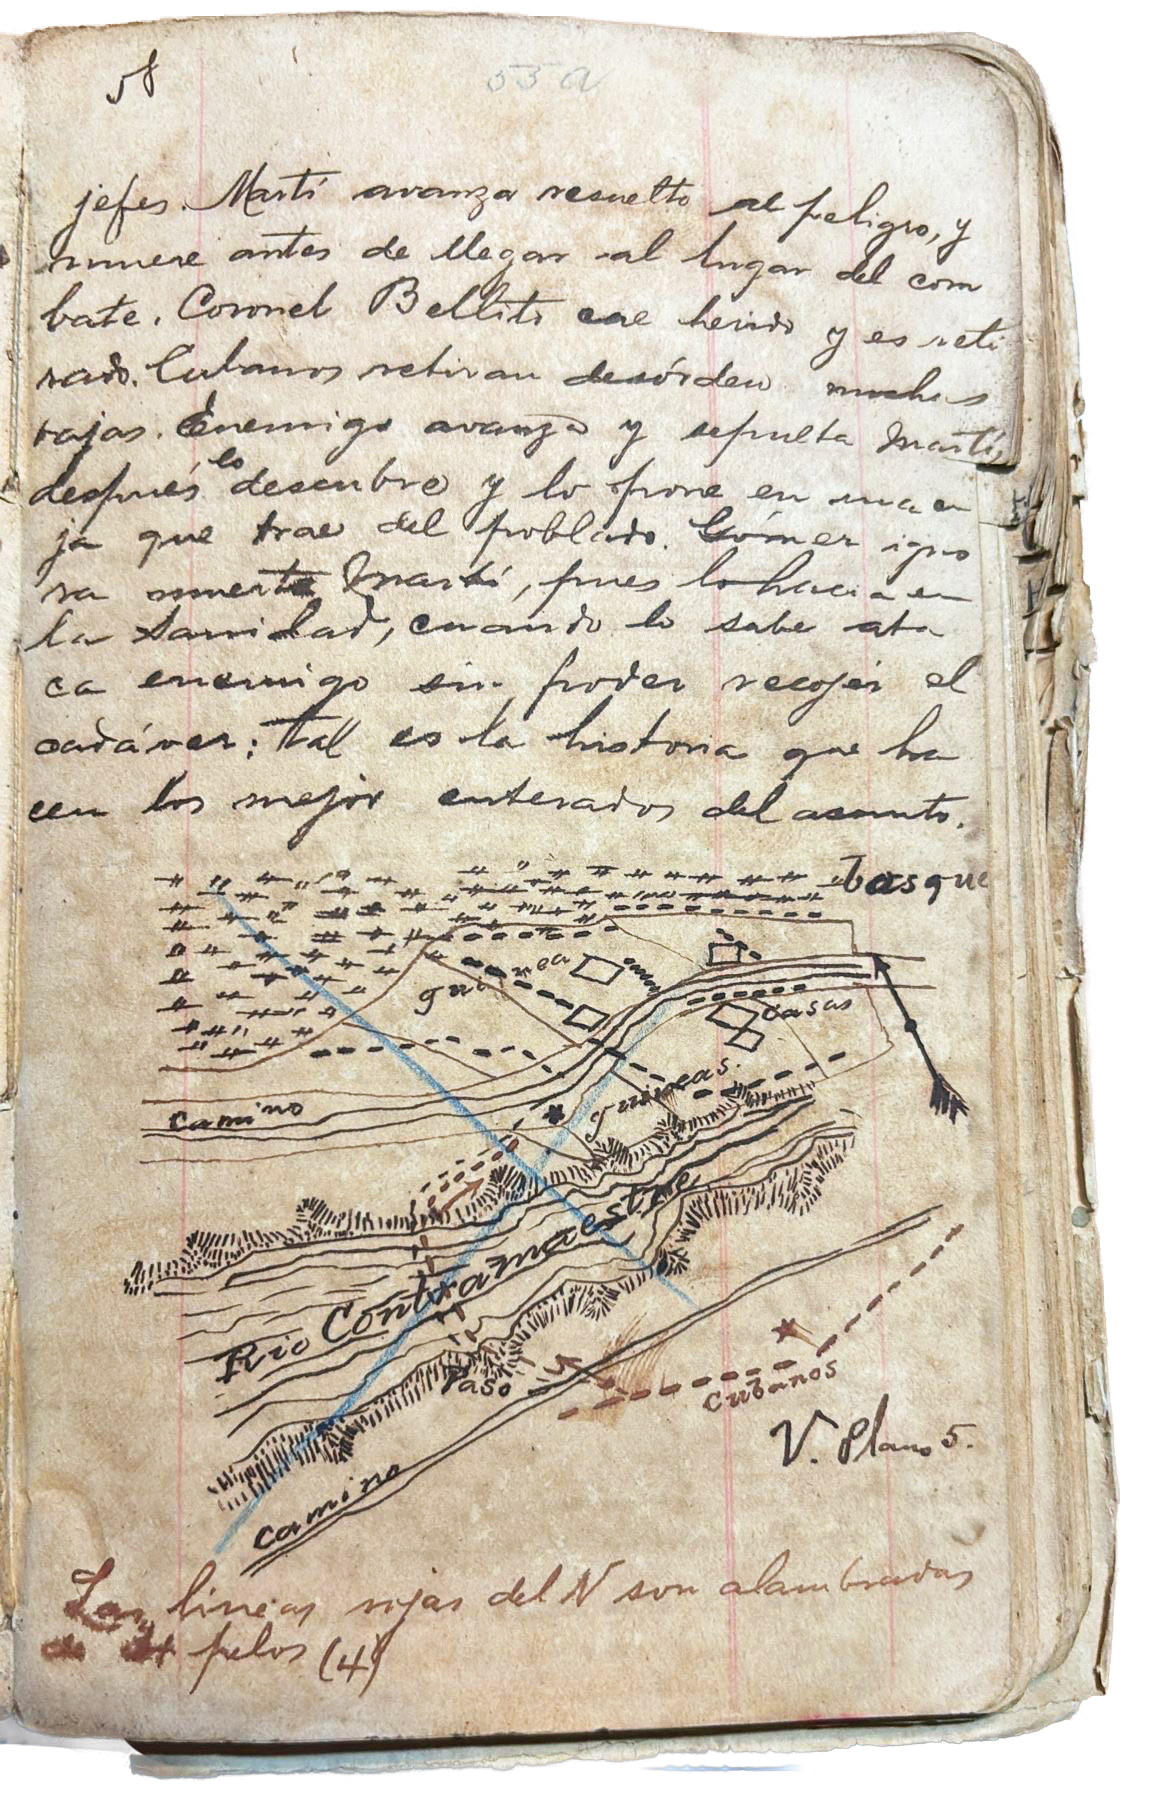 58
53 a
jefes. Martí avanza resuelto al peligro, y
muere antes de llegar al lugar del com
bate. Coronel Bellito cae herido y es reti
rado. Cubanos retiran desórden muchas
bajas. Enemigo avanza y sepulta Martí,
después lo descubre y lo pone en una ca
ja que trae del poblado. Gómez igno
ra muerte Martí, pues lo hacia en
la Sanidad, cuando lo sabe ata
ca enemigo sin poder recojer el
cadáver: Tal es la historia que ha
cen los mejor enterados del asunto.
Bosque
guinea
Casas
guineas.
Camino
Rio Contramaestre
Paso
Cubanos
V. Plano 5.
Camino
Las lineas rojas del N son alambradas
de 4 pelos (4)